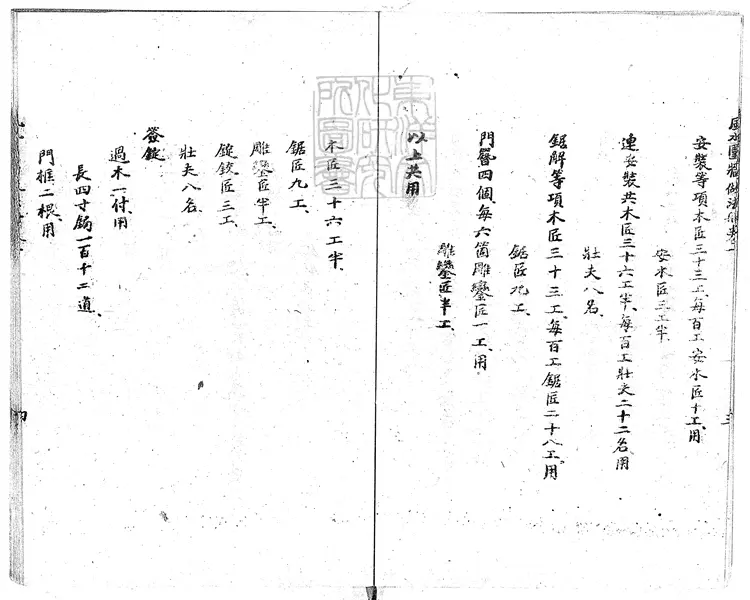 安裝等項木匠三十三工、每百工安木匠十工、用
安木匠三工半、
連安裝共木匠三十六工半、每百工壯夫二十二名用
壯夫八名、
鋸解等項木匠三十三工、每百工鋸匠二十八工、用
鋸匠九工、
門簪四個、每六箇雕鑾匠一工、用
雕鑾匠半工、
以上共用
木匠三十六工半、
鋸匠九工、
雕鑾匠半工、
錠鉸匠三工、
壯夫八名、
簽錠
過木一付、用
長四寸鋦一百十二道、
門樁二根、用
三
四